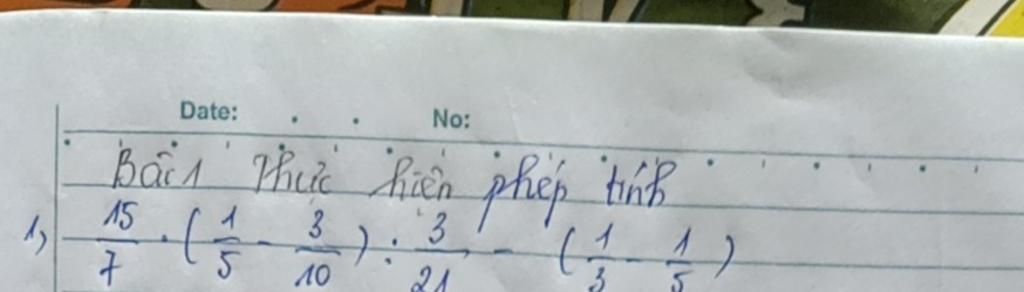 Date: No:
Bài 1 Thực hiện phép tính
1, 15/7 . ( 1/5 - 3/10 ) : 3/21 - ( 1/3 - 1/5 )